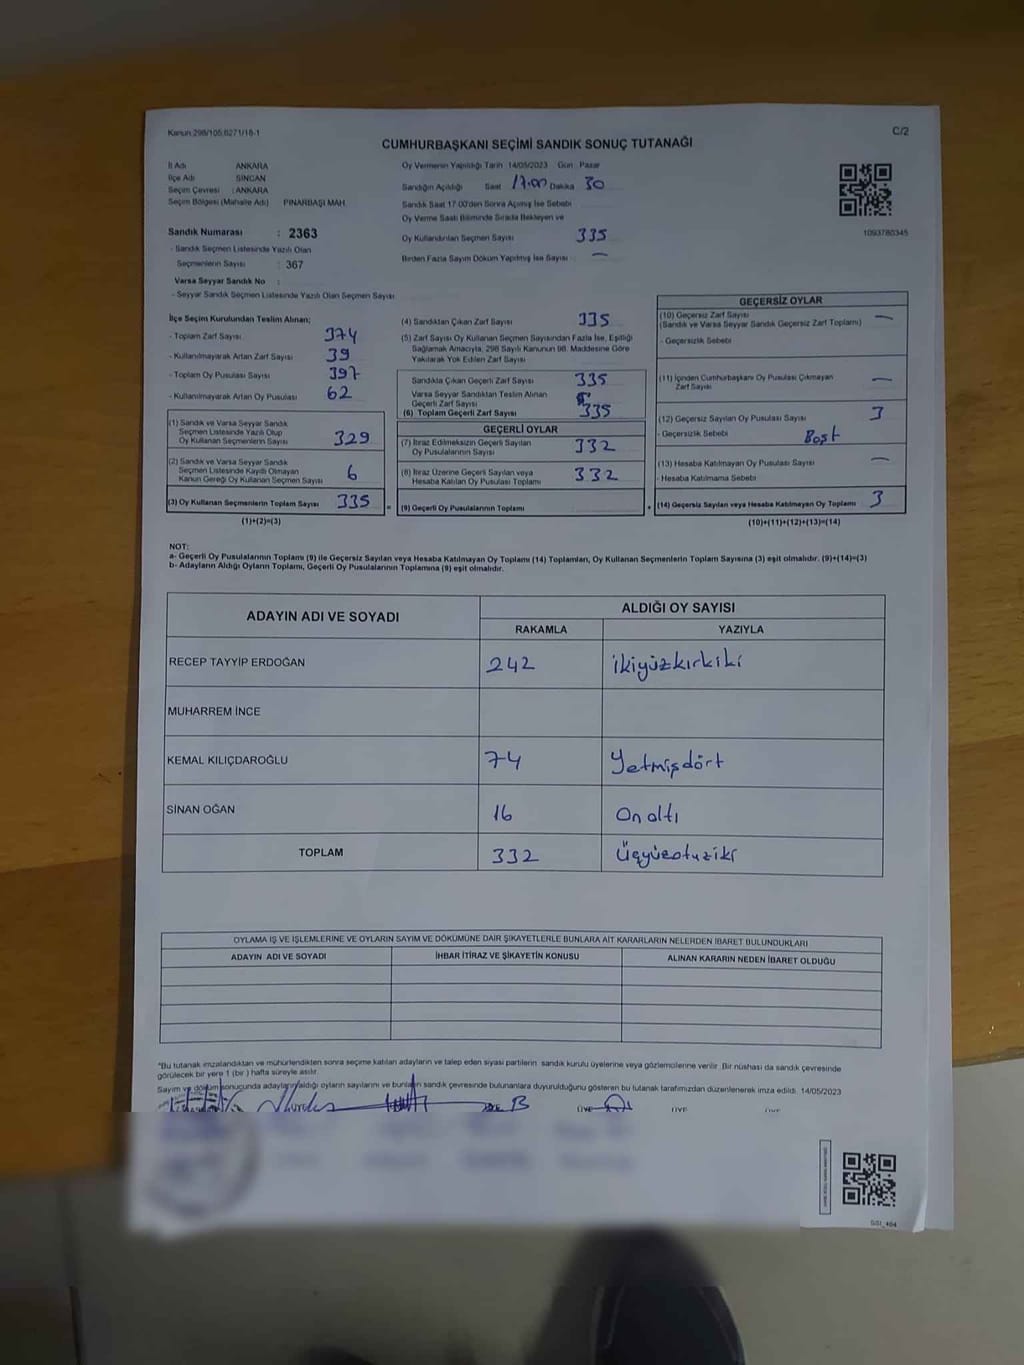 Kanun:298/105;6271/18-1
C/2
CUMHURBAŞKANI SEÇİMİ SANDIK SONUÇ TUTANAĞI
İl Adı ANKARA
İlçe Adı SİNCAN
Seçim Çevresi : ANKARA
Seçim Bölgesi (Mahalle Adı) PINARBAŞI MAH.
Sandık Numarası : 2363
- Sandık Seçmen Listesinde Yazılı Olan
Seçmenlerin Sayısı : 367
Varsa Seyyar Sandık No :
- Seyyar Sandık Seçmen Listesinde Yazılı Olan Seçmen Sayısı
Oy Vermenin Yapıldığı Tarih 14/05/2023 Gün Pazar
Sandığın Açıldığı Saat 17.00 Dakika 30
Sandık Saat 17:00'den Sonra Açılmış İse Sebebi
Oy Verme Saati Bitiminde Sırada Bekleyen ve
Oy Kullandırılan Seçmen Sayısı 335
Birden Fazla Sayım Döküm Yapılmış İse Sayısı : —
1093780345
İlçe Seçim Kurulundan Teslim Alınan;
- Toplam Zarf Sayısı 374
- Kullanılmayarak Artan Zarf Sayısı 39
- Toplam Oy Pusulası Sayısı 397
- Kullanılmayarak Artan Oy Pusulası 62
(1) Sandık ve Varsa Seyyar Sandık
Seçmen Listesinde Yazılı Olup
Oy Kullanan Seçmenlerin Sayısı 329
(2) Sandık ve Varsa Seyyar Sandık
Seçmen Listesinde Kayıtlı Olmayan
Kanun Gereği Oy Kullanan Seçmen Sayısı 6
(3) Oy Kullanan Seçmenlerin Toplam Sayısı 335
(1)+(2)=(3)
(4) Sandıktan Çıkan Zarf Sayısı 335
(5) Zarf Sayısı Oy Kullanan Seçmen Sayısından Fazla İse, Eşitliği
Sağlamak Amacıyla, 298 Sayılı Kanunun 98. Maddesine Göre
Yakılarak Yok Edilen Zarf Sayısı
Sandıkta Çıkan Geçerli Zarf Sayısı 335
Varsa Seyyar Sandıktan Teslim Alınan
Geçerli Zarf Sayısı
(6) Toplam Geçerli Zarf Sayısı 335
GEÇERLİ OYLAR
(7) İtiraz Edilmeksizin Geçerli Sayılan
Oy Pusulalarının Sayısı 332
(8) İtiraz Üzerine Geçerli Sayılan veya
Hesaba Katılan Oy Pusulası Toplamı 332
= (9) Geçerli Oy Pusulalarının Toplamı
GEÇERSİZ OYLAR
(10) Geçersiz Zarf Sayısı —
(Sandık ve Varsa Seyyar Sandık Geçersiz Zarf Toplamı)
- Geçersizlik Sebebi
(11) İçinden Cumhurbaşkanı Oy Pusulası Çıkmayan
Zarf Sayısı —
(12) Geçersiz Sayılan Oy Pusulası Sayısı 3
- Geçersizlik Sebebi Boşt
(13) Hesaba Katılmayan Oy Pusulası Sayısı —
- Hesaba Katılmama Sebebi
+ (14) Geçersiz Sayılan veya Hesaba Katılmayan Oy Toplamı 3
(10)+(11)+(12)+(13)=(14)
NOT:
a- Geçerli Oy Pusulalarının Toplamı (9) ile Geçersiz Sayılan veya Hesaba Katılmayan Oy Toplamı (14) Toplamları, Oy Kullanan Seçmenlerin Toplam Sayısına (3) eşit olmalıdır. (9)+(14)=(3)
b- Adayların Aldığı Oyların Toplamı, Geçerli Oy Pusulalarının Toplamına (9) eşit olmalıdır.
ADAYIN ADI VE SOYADI
ALDIĞI OY SAYISI
RAKAMLA YAZIYLA
RECEP TAYYİP ERDOĞAN 242 ikiyüzkırkiki
MUHARREM İNCE
KEMAL KILIÇDAROĞLU 74 Yetmişdört
SİNAN OĞAN 16 On altı
TOPLAM 332 Üçyüzotuziki
OYLAMA İŞ VE İŞLEMLERİNE VE OYLARIN SAYIM VE DÖKÜMÜNE DAİR ŞİKAYETLERLE BUNLARA AİT KARARLARIN NELERDEN İBARET BULUNDUKLARI
ADAYIN ADI VE SOYADI İHBAR İTİRAZ VE ŞİKAYETİN KONUSU ALINAN KARARIN NEDEN İBARET OLDUĞU
*Bu tutanak imzalandıktan ve mühürlendikten sonra seçime katılan adayların ve talep eden siyasi partilerin sandık kurulu üyelerine veya gözlemcilerine verilir. Bir nüshası da sandık çevresinde
görülecek bir yere 1 (bir) hafta süreyle asılır.
Sayım ve döküm sonucunda adayların aldığı oyların sayılarını ve bunların sandık çevresinde bulunanlara duyurulduğunu gösteren bu tutanak tarafımızdan düzenlenerek imza edildi. 14/05/2023
ÜYE ÜYE ÜYE